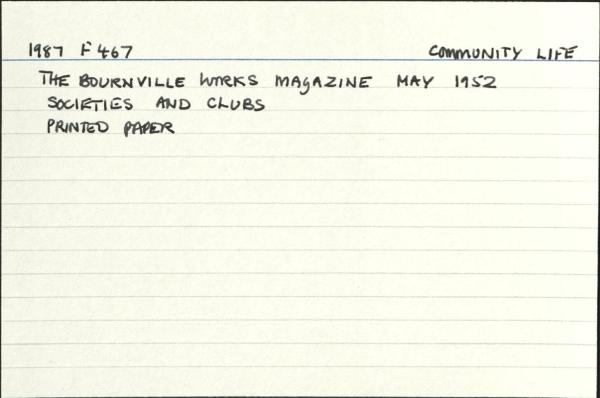 1987 F 467 COMMUNITY LIFE
THE BOURNVILLE WORKS MAGAZINE MAY 1952
SOCIETIES AND CLUBS
PRINTED PAPER